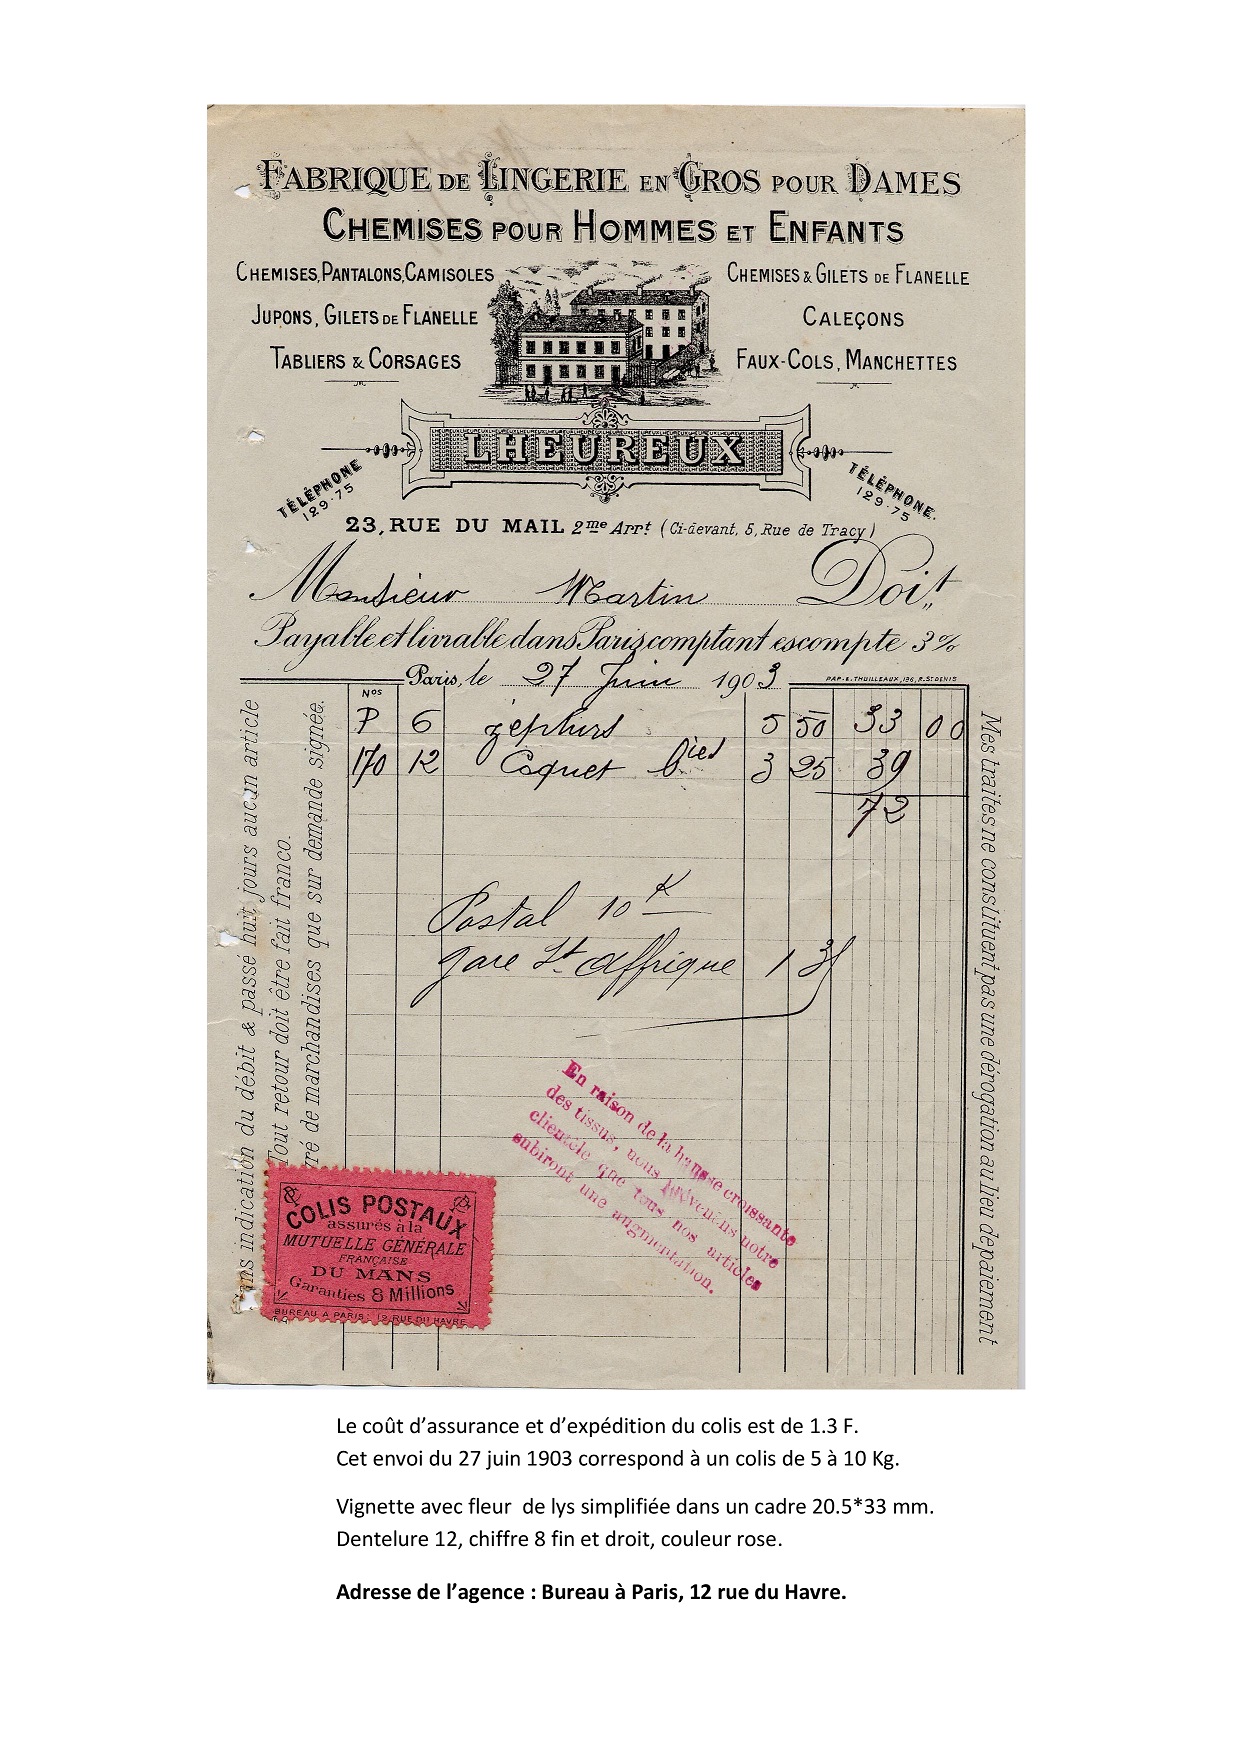 FABRIQUE DE LINGERIE EN GROS POUR DAMES
CHEMISES POUR HOMMES ET ENFANTS
CHEMISES, PANTALONS, CAMISOLES
JUPONS, GILETS DE FLANELLE
TABLIERS & CORSAGES
CHEMISES & GILETS DE FLANELLE
CALEÇONS
FAUX-COLS, MANCHETTES
LHEUREUX
TÉLÉPHONE
129·75
TÉLÉPHONE.
129·75
23, RUE DU MAIL 2me Arrt (Ci-devant, 5, Rue de Tracy)
Monsieur Martin Doit
Payable et livrable dans Paris comptant escompte 3%
Paris, le 27 Juin 1903
PAP. E. THUILLEAUX, 196, R. ST DENIS
Nos
P 6 zéphirs 5 50 33 00
170 12 Coquet bies 3 25 39
72
Postal 10 K
gare St Affrique 1 3
ans indication du débit & passé huit jours aucun article
Tout retour doit être fait franco.
ré de marchandises que sur demande signée.
Mes traites ne constituent pas une dérogation au lieu de paiement
En raison de la hausse croissante
des tissus, nous prévenons notre
clientèle que tous nos articles
subiront une augmentation.
COLIS POSTAUX
assurés à la
MUTUELLE GÉNÉRALE
FRANÇAISE
DU MANS
Garanties 8 Millions
BUREAU A PARIS : 12 RUE DU HAVRE
Le coût d’assurance et d’expédition du colis est de 1.3 F.
Cet envoi du 27 juin 1903 correspond à un colis de 5 à 10 Kg.
Vignette avec fleur de lys simplifiée dans un cadre 20.5*33 mm.
Dentelure 12, chiffre 8 fin et droit, couleur rose.
Adresse de l’agence : Bureau à Paris, 12 rue du Havre.